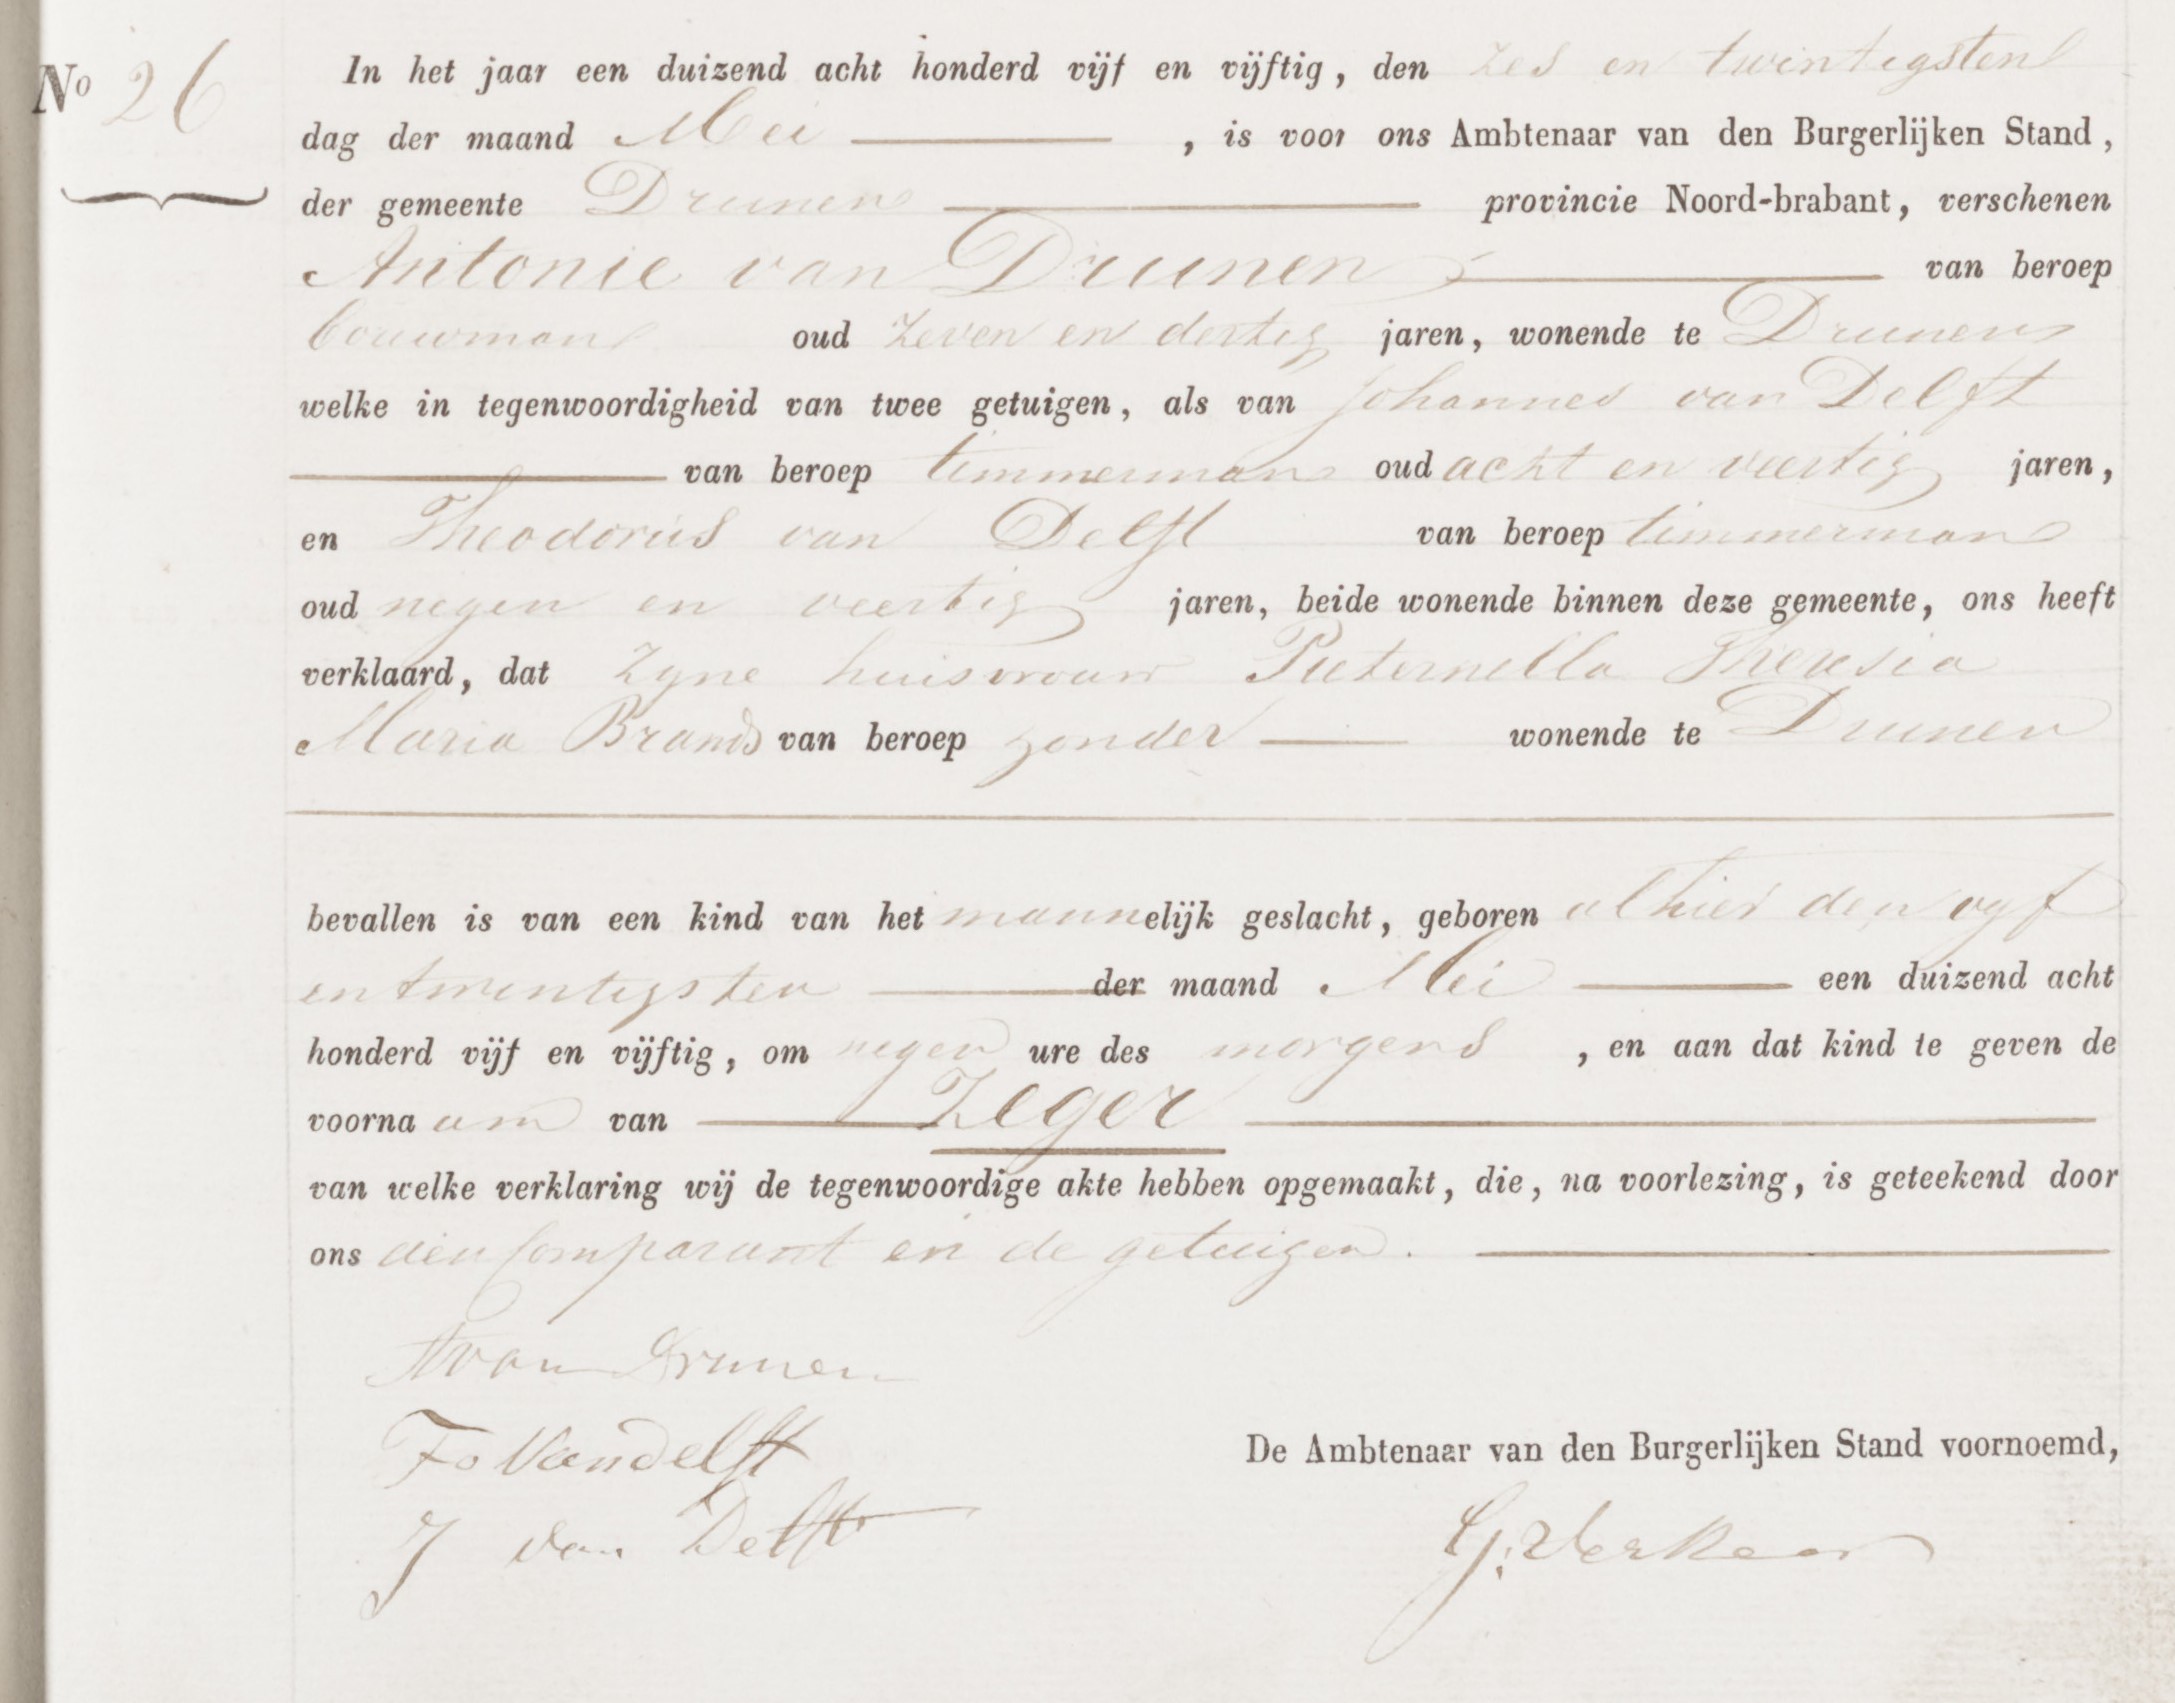 No 26
In het jaar een duizend acht honderd vijf en vijftig, den zes en twintigsten
dag der maand Mei , is voor ons Ambtenaar van den Burgerlijken Stand,
der gemeente Drunen provincie Noord-brabant, verschenen
Antonie van Drunen van beroep
bouwman oud zeven en dertig jaren, wonende te Drunen
welke in tegenwoordigheid van twee getuigen, als van Johannes van Delft
van beroep timmerman oud acht en veertig jaren,
en Theodorus van Delft van beroep timmerman
oud negen en veertig jaren, beide wonende binnen deze gemeente, ons heeft
verklaard, dat zyne huisvrouw Pieternella Theresia
Maria Brands van beroep zonder wonende te Drunen
bevallen is van een kind van het mannelijk geslacht, geboren alhier den vyf
en twintigsten der maand Mei een duizend acht
honderd vijf en vijftig, om negen ure des morgens , en aan dat kind te geven de
voornaam van Zeger
van welke verklaring wij de tegenwoordige akte hebben opgemaakt, die, na voorlezing, is geteekend door
ons den Comparant en de getuigen.
A van Drunen
Van delft
De Ambtenaar van den Burgerlijken Stand voornoemd,
J van Delft